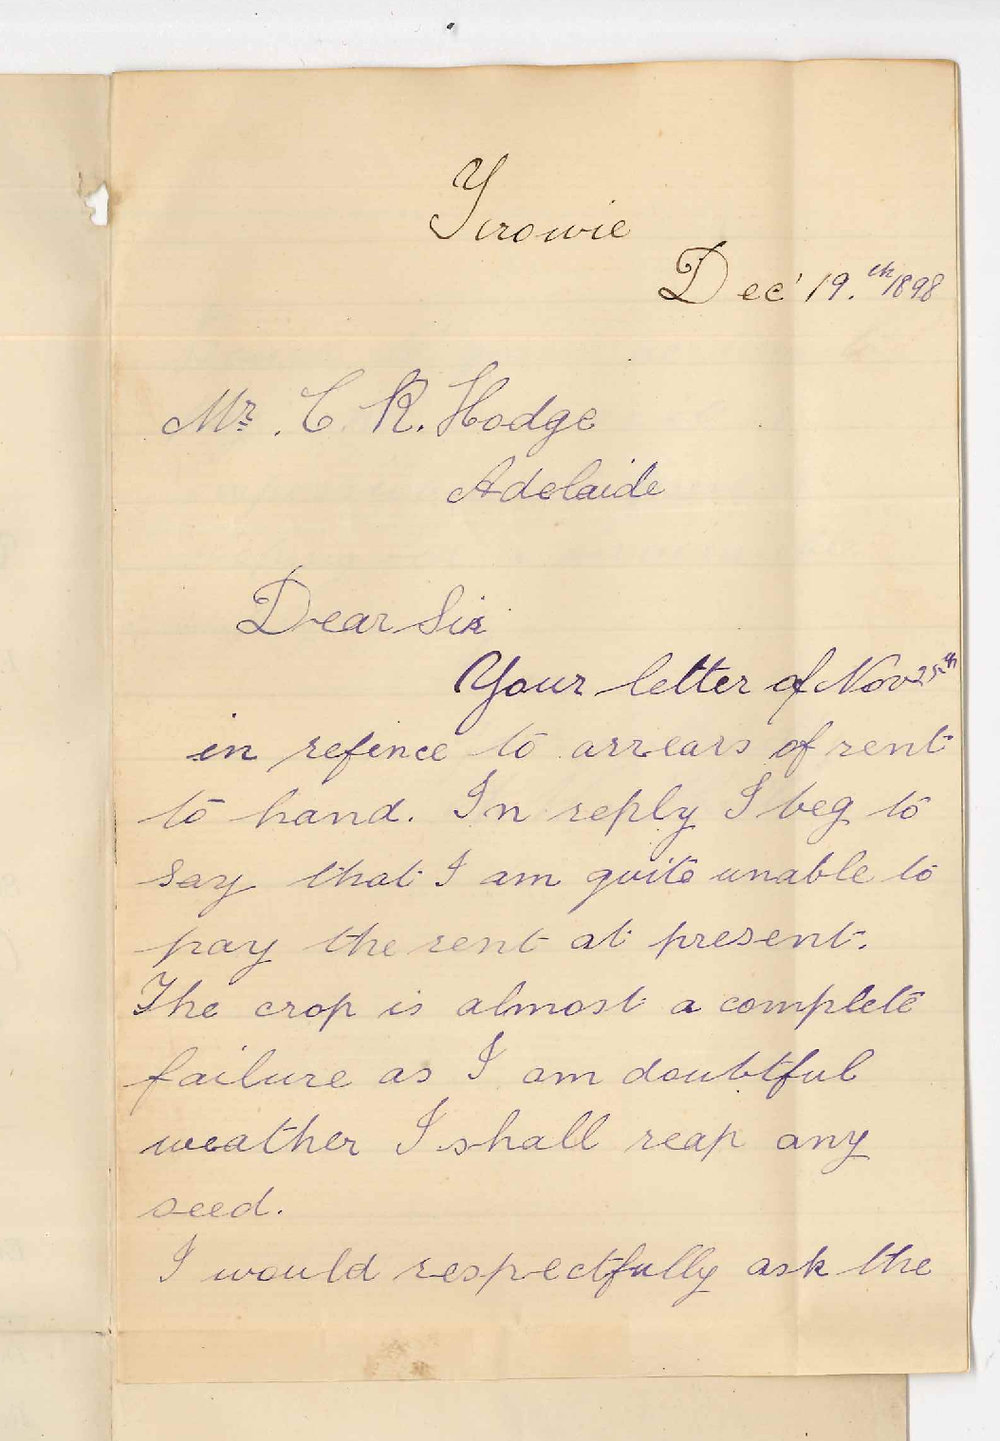 Yrowie
Dec' 19.th 1898
Mr. C. R. Hodge
Adelaide
Dear Sir
Your letter of Nov 25th
in refence to arrears of rent
to hand. In reply I beg to
say that I am quite unable to
pay the rent at present.
The crop is almost a complete
failure as I am doubtful
weather I shall reap any
seed.
I would respectfully ask the